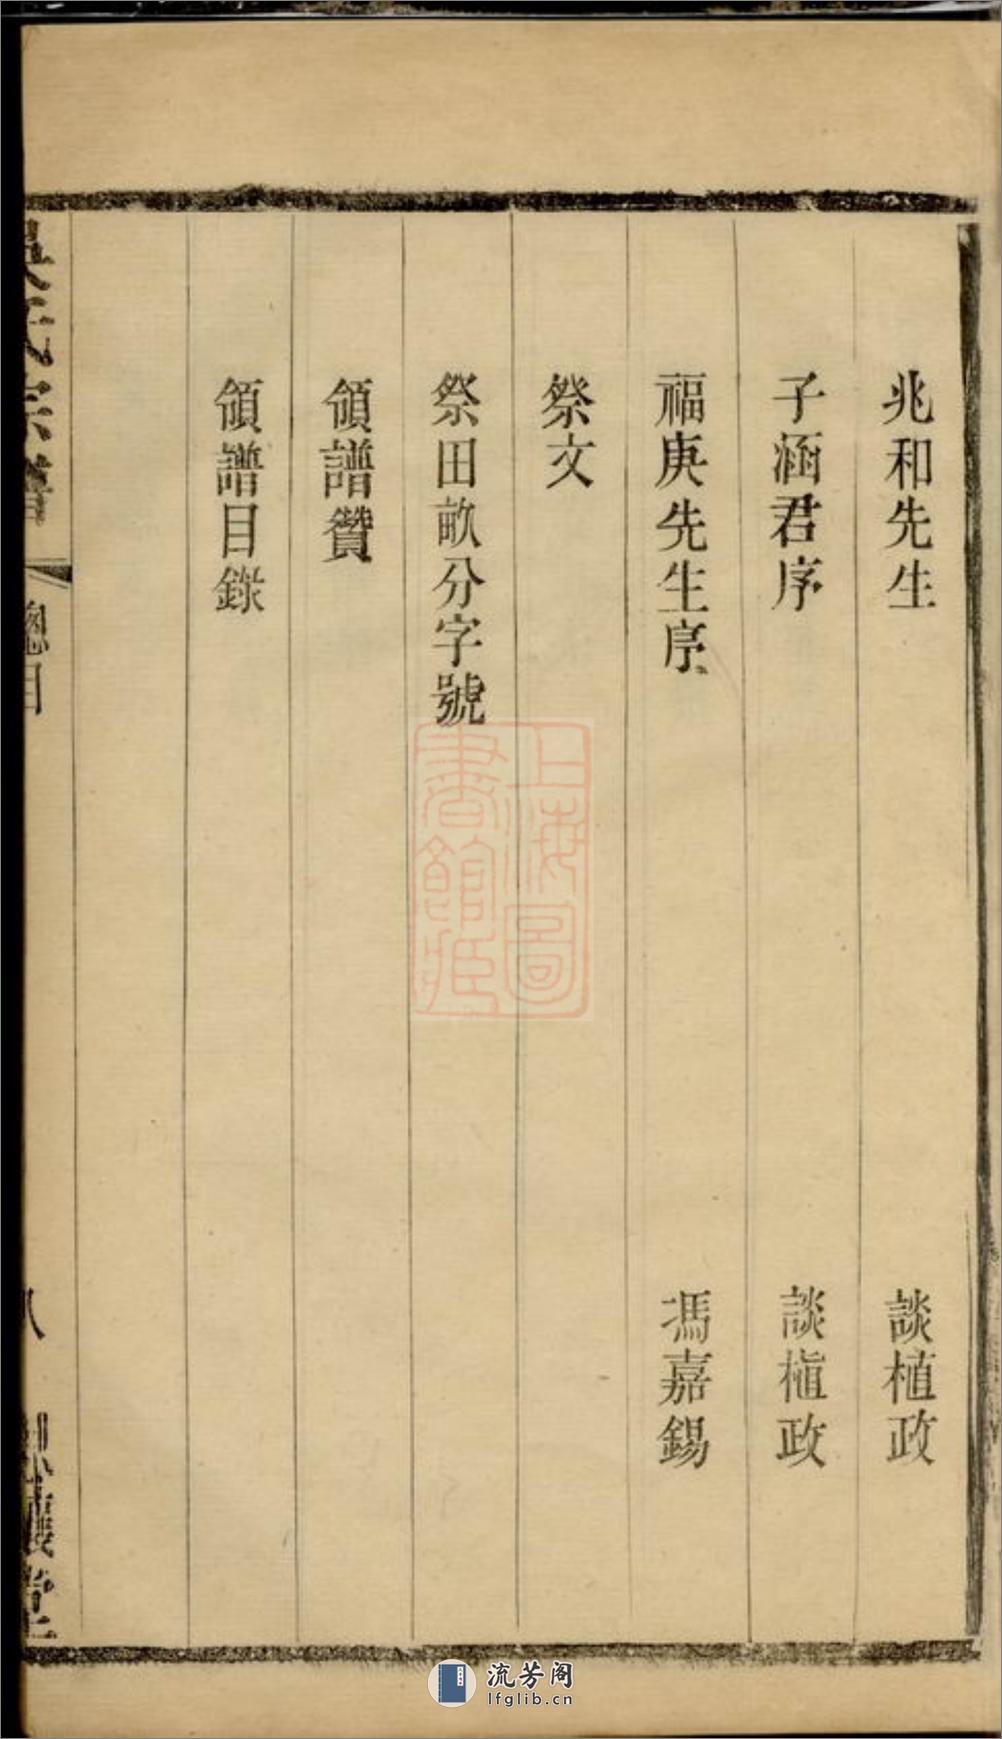 兆和先生 談植政
子涵君序 談植政
福庚先生序 馮嘉錫
祭文
祭田畝分字號
領譜贊
領譜目錄
吳氏宗譜 總目 八
上海圖書館藏
流芳阁
lfglib.cn